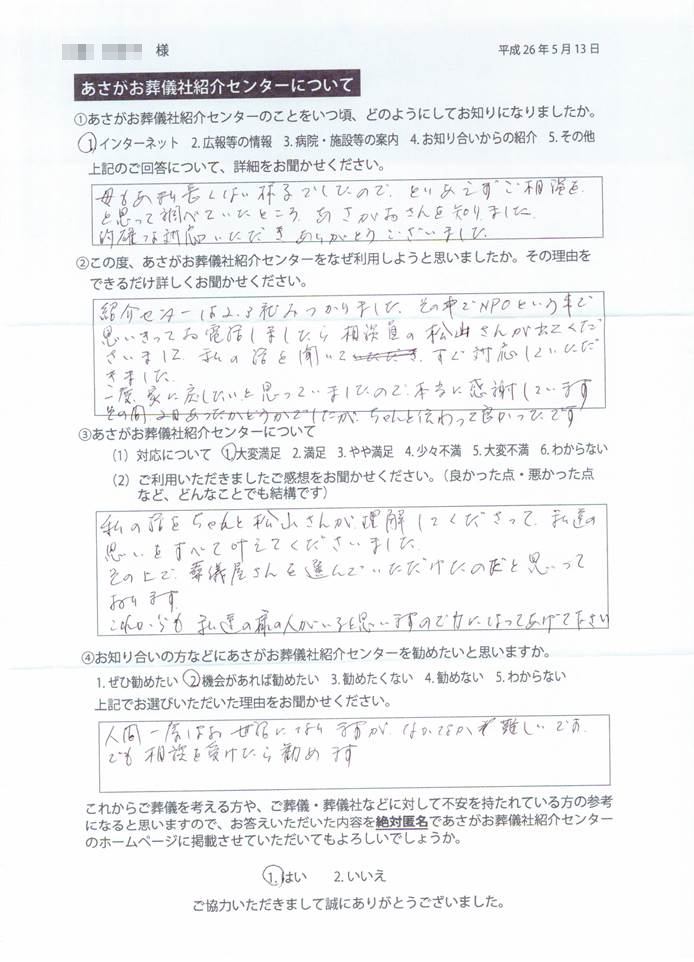 様
平成 26 年 5 月 13 日
あさがお葬儀社紹介センターについて
①あさがお葬儀社紹介センターのことをいつ頃、どのようにしてお知りになりましたか。
1. インターネット 2. 広報等の情報 3. 病院・施設等の案内 4. お知り合いからの紹介 5. その他
上記のご回答について、詳細をお聞かせください。
母もあまり長くない様子でしたので、とりあえずご相談を、
と思って調べていたところ、あさがおさんを知りました。
的確な対応いただきありがとうございました。
②この度、あさがお葬儀社紹介センターをなぜ利用しようと思いましたか。その理由を
できるだけ詳しくお聞かせください。
紹介センターは2、3社みつかりました。その中でNPOという事で
思いきってお電話しましたら相談員の松山さんが出てくだ
さいまして、私の話を聞いて、すぐ対応していただ
きました。
一度、家に戻したいと思っていましたので、本当に感謝しています
その間2日あったかどうかでしたが、ちゃんと伝わって良かったです
③あさがお葬儀社紹介センターについて
(1) 対応について 1. 大変満足 2. 満足 3. やや満足 4. 少々不満 5. 大変不満 6. わからない
(2) ご利用いただきましたご感想をお聞かせください。（良かった点・悪かった点
など、どんなことでも結構です）
私の話をちゃんと松山さんが理解してくださって、私達の
思いをすべて叶えてくださいました。
その上で、葬儀屋さんを選んでいただけたのだと思って
おります。
これからも私達の様の人がいると思いますので力になってあげて下さい
④お知り合いの方などにあさがお葬儀社紹介センターを勧めたいと思いますか。
1. ぜひ勧めたい 2. 機会があれば勧めたい 3. 勧めたくない 4. 勧めない 5. わからない
上記でお選びいただいた理由をお聞かせください。
人間一度はお世話になりますが、なかなか難しいです。
でも相談を受けたら勧めます
これからご葬儀を考える方や、ご葬儀・葬儀社などに対して不安を持たれている方の参考
になると思いますので、お答えいただいた内容を絶対匿名であさがお葬儀社紹介センター
のホームページに掲載させていただいてもよろしいでしょうか。
1. はい 2. いいえ
ご協力いただきまして誠にありがとうございました。